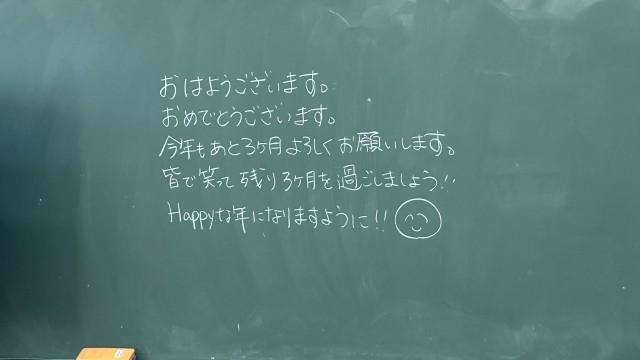 おはようございます。
おめでとうございます。
今年もあと3ヶ月よろしくお願いします。
皆で笑って残り3ヶ月を過ごしましょう!!
Happyな年になりますように!!